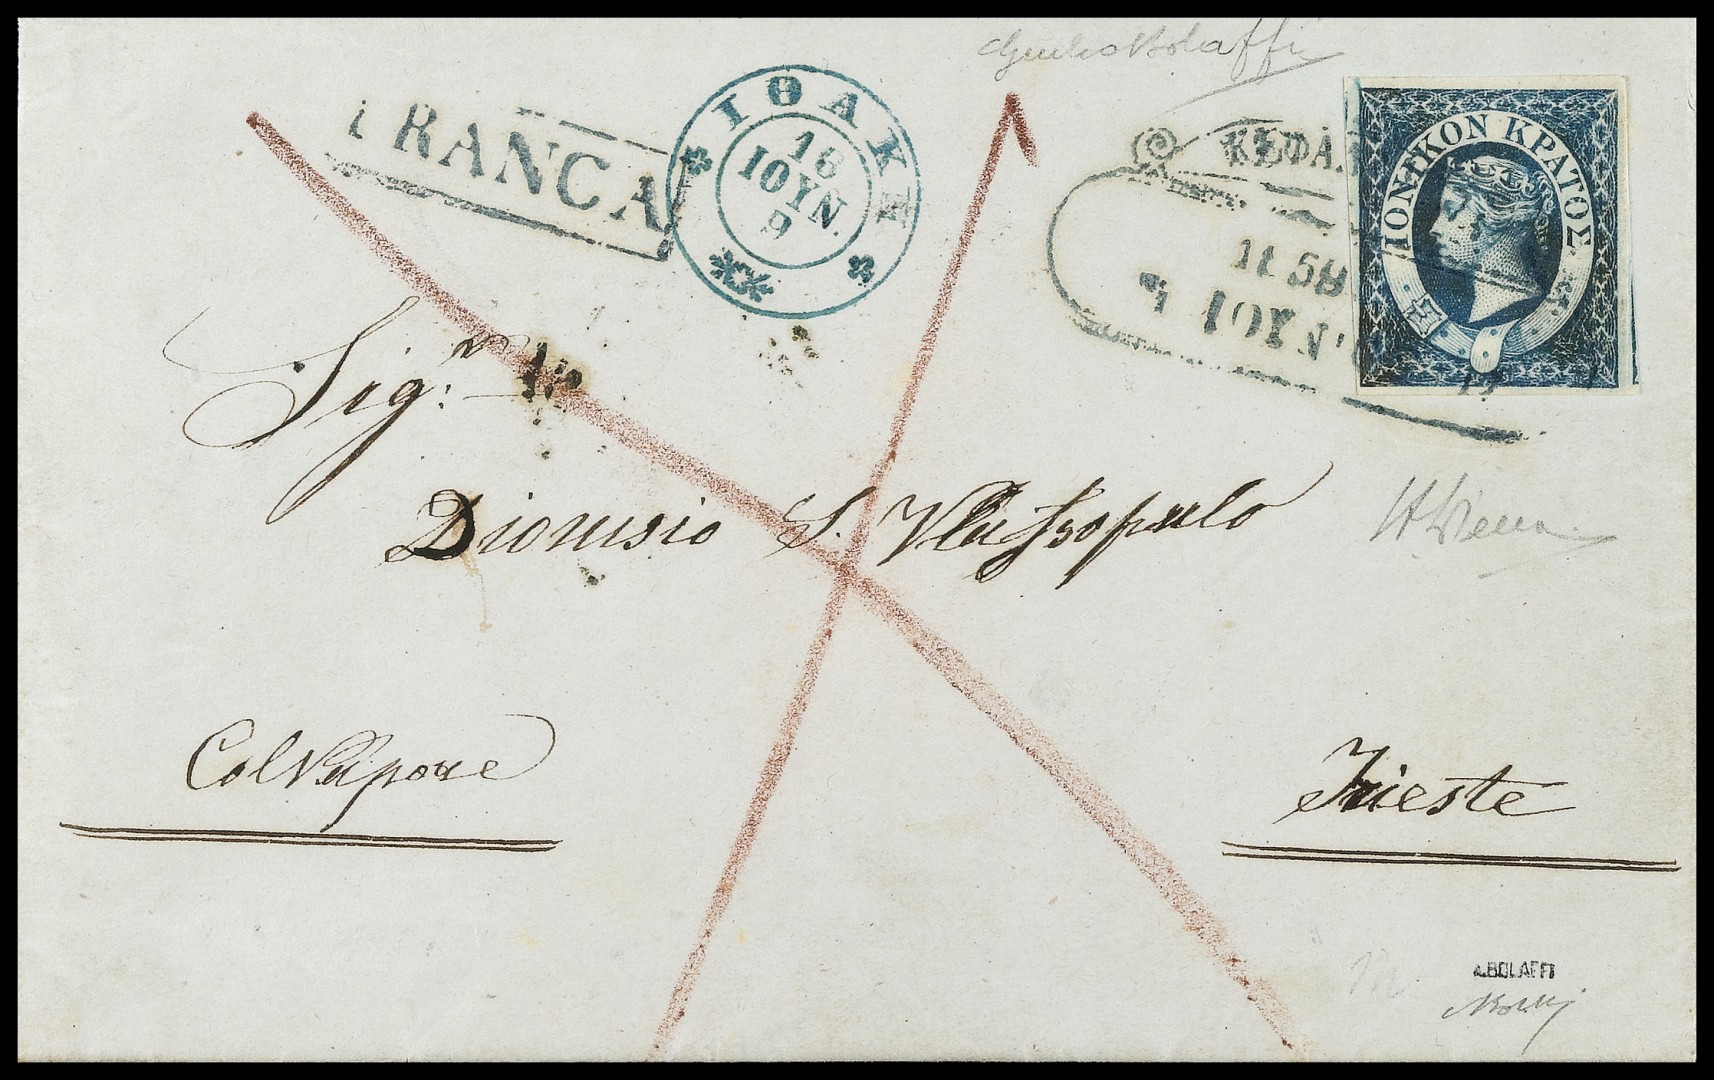 Giulio Bolaffi
FRANCA
ΙΘΑΚΗ
18
ΙΟΥΝ.
9
ΚΕΦΑΛ
18 59
ΙΟΥΝ.
ΙΟΝΙΚΟΝ ΚΡΑΤΟΣ
Sig.r
Dionisio S. Vlassopulo
Col Vapore
Trieste
A.BOLAFFI